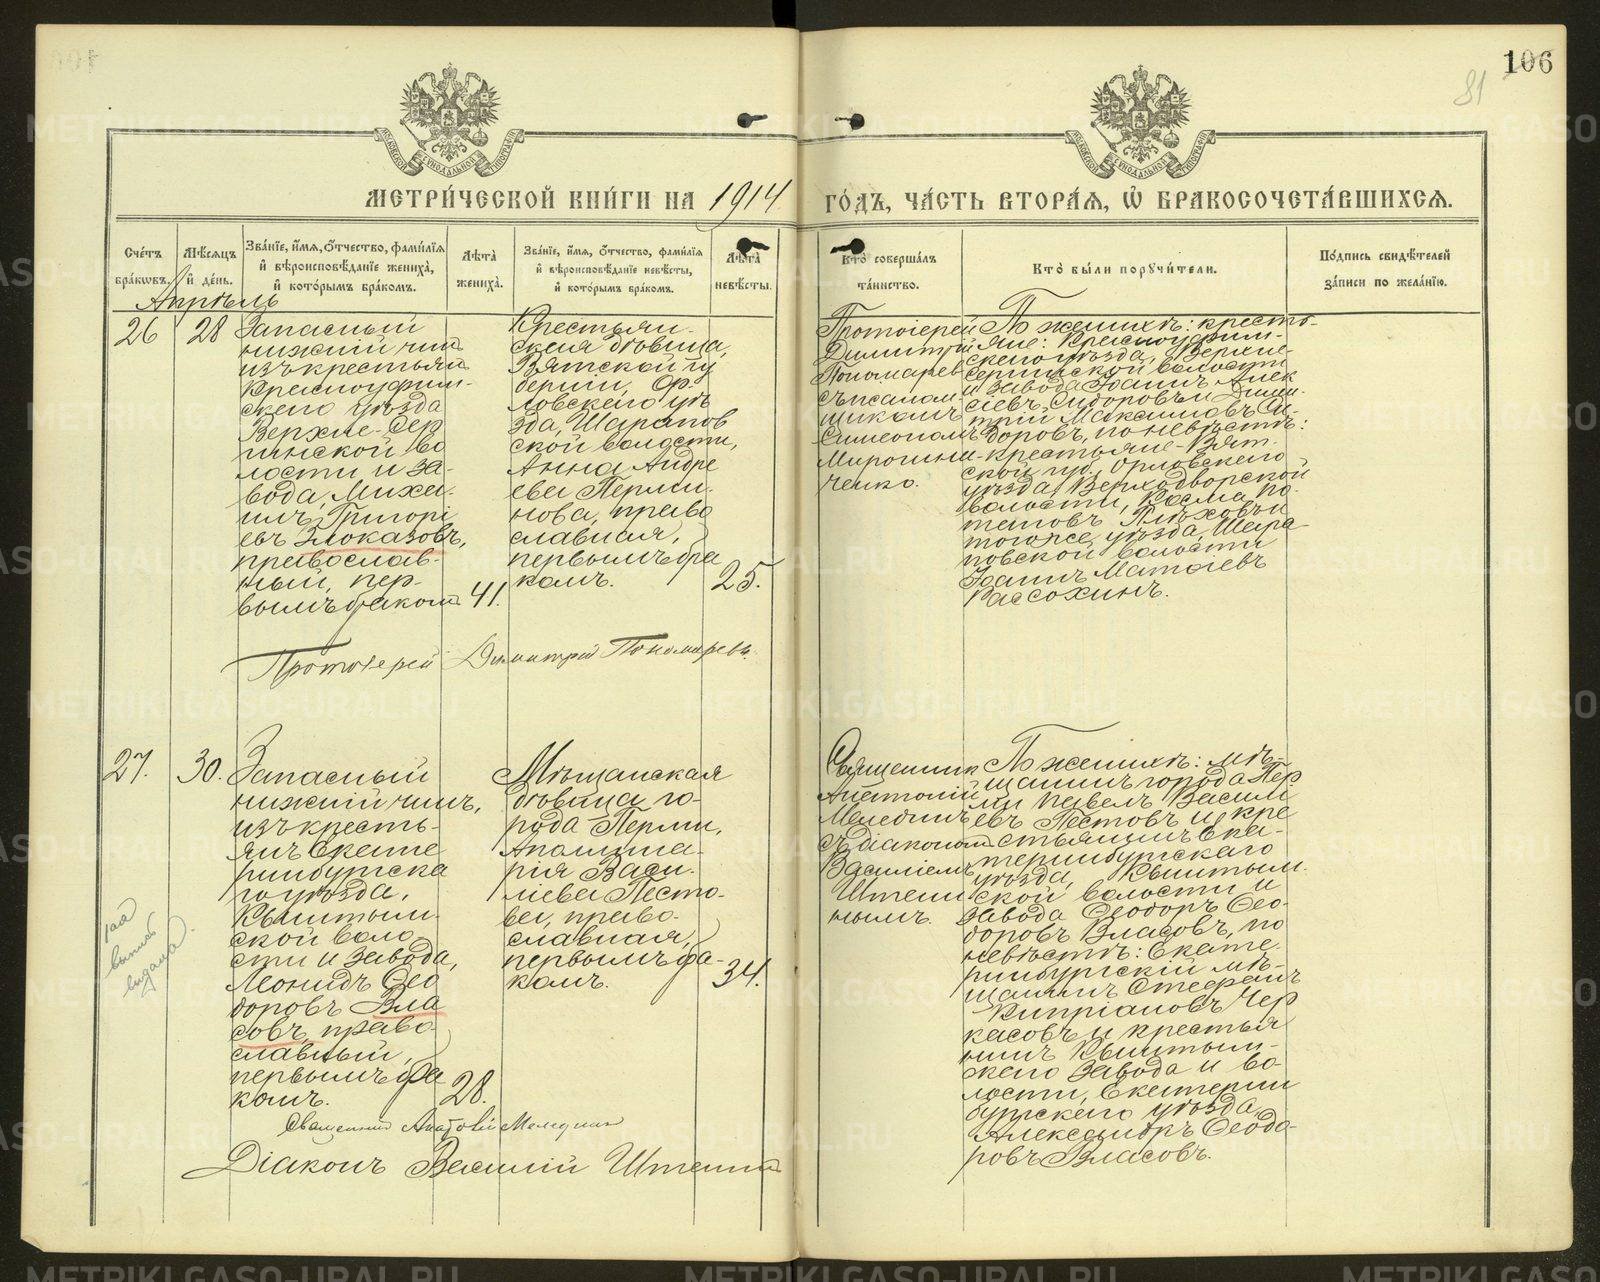 106
81
МЕТРИ́ЧЕСКОЙ КНИ́ГИ НА 1914 ГО́ДЪ, ЧА́СТЬ ВТОРА́Я, Ѽ БРАКОСОЧЕТА́ВШИХСЯ.
Сче́тъ бра́кѡвъ.
Мѣ́сяцъ и де́нь.
Зва́нїе, и́мя, ѻ́тчество, фами́лїя и вѣроисповѣ́данїе жениха̀, и кото́рымъ бра́комъ.
Лѣта̀ жениха̀.
Зва́нїе, и́мя, ѻ́тчество, фами́лїя и вѣроисповѣ́данїе невѣ́сты, и кото́рымъ бра́комъ.
Лѣта̀ невѣ́сты.
Кто̀ соверша́лъ та́инство.
Кто̀ бы́ли поручи́тели.
По́дпись свидѣ́телей за́писи по жела́нїю.
Апрѣль
26
28
Запасный
нижній чин
изъ крестьян
Красноуфим-
скаго уѣзда
Верхне-Сер
гинской во
лости и за-
вода, Миха-
илъ Григорі
евъ Злоказовъ,
православ-
ный, пер-
вымъ бракомъ
41.
Крестьян-
ская дѣвица,
Вятской гу
берніи, Ор-
ловскаго уѣ
зда, Шарапов
ской волости,
Анна Андре
ева Перми-
нова, право
славная,
первымъ бра
комъ.
25.
Протоіерей
Димитрій
Пономарев
съ псалом
щикомъ
Симеономъ
Мирошни-
ченко.
По женихѣ: кресть-
яне: Красноуфим-
скаго уѣзда, Верхне-
Сергинской волости
и завода Іоаннъ Алек
сіевъ Сидоровъ и Дими-
трій Максимовъ Си-
доровъ, по невѣстѣ:
крестьяне Вят-
ской губ., Орловскаго
уѣзда, Верходворской
волости, Косма По-
таповъ Плѣховъ и
тогоже уѣзда, Шара-
повской волости
Іоаннъ Матѳіевъ
Вассохинъ.
Протоіерей Димитрій Пономаревъ.
27.
30.
Запасный
нижній чинъ,
изъ кресть-
янъ Екате
ринбургска
го уѣзда,
Кыштым-
ской воло-
сти и завода,
Леонидъ Ѳео
доровъ Вла
совъ, право-
славный,
первымъ бра
комъ.
28.
Мѣщанская
дѣвица го-
рода Перми,
Аполлина-
рія Васи-
ліева Песто-
ва, право-
славная,
первымъ бра-
комъ.
34.
Священник
Анатолій
Меледин
съ діакономъ
Василіемъ
Штен
нымъ.
По женихѣ: мѣ-
щанинъ города Пер
ми Павелъ Василі
евъ Пестовъ и кре
стьянинъ Ека-
теринбургскаго
уѣзда, Кыштым-
ской волости и
завода Ѳеодоръ Ѳео-
доровъ Власовъ, по
невѣстѣ: Екате-
ринбургскій мѣ-
щанинъ Стефанъ
Кипріановъ Чер
касовъ и крестья
нинъ Кыштым-
скаго завода и во-
лости, Екатерин
бургскаго уѣзда,
Александръ Ѳеодо-
ровъ Власовъ.
выпись
выдана
Священник Анатолій Меледин
Діаконъ Василій Штенин